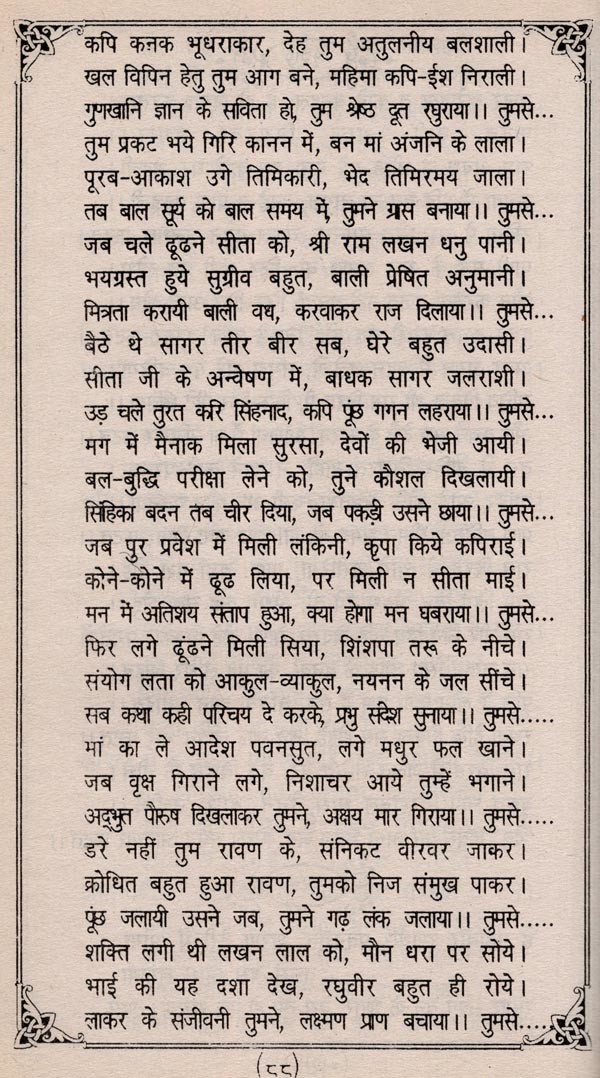 कपि कनक भूधराकार, देह तुम अतुलनीय बलशाली।
खल विपिन हेतु तुम आग बने, महिमा कपि-ईश निराली।
गुणखानि ज्ञान के सविता हो, तुम श्रेष्ठ दूत रघुराया।। तुमसे...
तुम प्रकट भये गिरि कानन में, बन मां अंजनि के लाला।
पूरब-आकाश उगे तिमिकारी, भेद तिमिरमय जाला।
तब बाल सूर्य को बाल समय में, तुमने ग्रास बनाया।। तुमसे...
जब चले ढूढने सीता को, श्री राम लखन धनु पानी।
भयग्रस्त हुये सुग्रीव बहुत, बाली प्रेषित अनुमानी।
मित्रता करायी बाली वध, करवाकर राज दिलाया।। तुमसे...
बैठे थे सागर तीर बीर सब, घेरे बहुत उदासी।
सीता जी के अन्वेषण में, बाधक सागर जलराशी।
उड़ चले तुरत करि सिंहनाद, कपि पूंछ गगन लहराया।। तुमसे...
मग में मैनाक मिला सुरसा, देवों की भेजी आयी।
बल-बुद्धि परीक्षा लेने को, तुने कौशल दिखलायी।
सिंहिका बदन तब चीर दिया, जब पकड़ी उसने छाया।। तुमसे...
जब पुर प्रवेश में मिली लंकिनी, कृपा किये कपिराई।
कोने-कोने में ढूढ लिया, पर मिली न सीता माई।
मन में अतिशय संताप हुआ, क्या होगा मन घबराया।। तुमसे...
फिर लगे ढूंढने मिली सिया, शिंशपा तरू के नीचे।
संयोग लता को आकुल-व्याकुल, नयनन के जल सींचे।
सब कथा कही परिचय दे करके, प्रभु संदेश सुनाया।। तुमसे.....
मां का ले आदेश पवनसुत, लगे मधुर फल खाने।
जब वृक्ष गिराने लगे, निशाचर आये तुम्हें भगाने।
अद्भुत पौरुष दिखलाकर तुमने, अक्षय मार गिराया।। तुमसे.....
डरे नहीं तुम रावण के, संनिकट वीरवर जाकर।
क्रोधित बहुत हुआ रावण, तुमको निज संमुख पाकर।
पूंछ जलायी उसने जब, तुमने गढ़ लंक जलाया।। तुमसे.....
शक्ति लगी थी लखन लाल को, मौन धरा पर सोये।
भाई की यह दशा देख, रघुवीर बहुत ही रोये।
लाकर के संजीवनी तुमने, लक्ष्मण प्राण बचाया।। तुमसे.....
(८८)